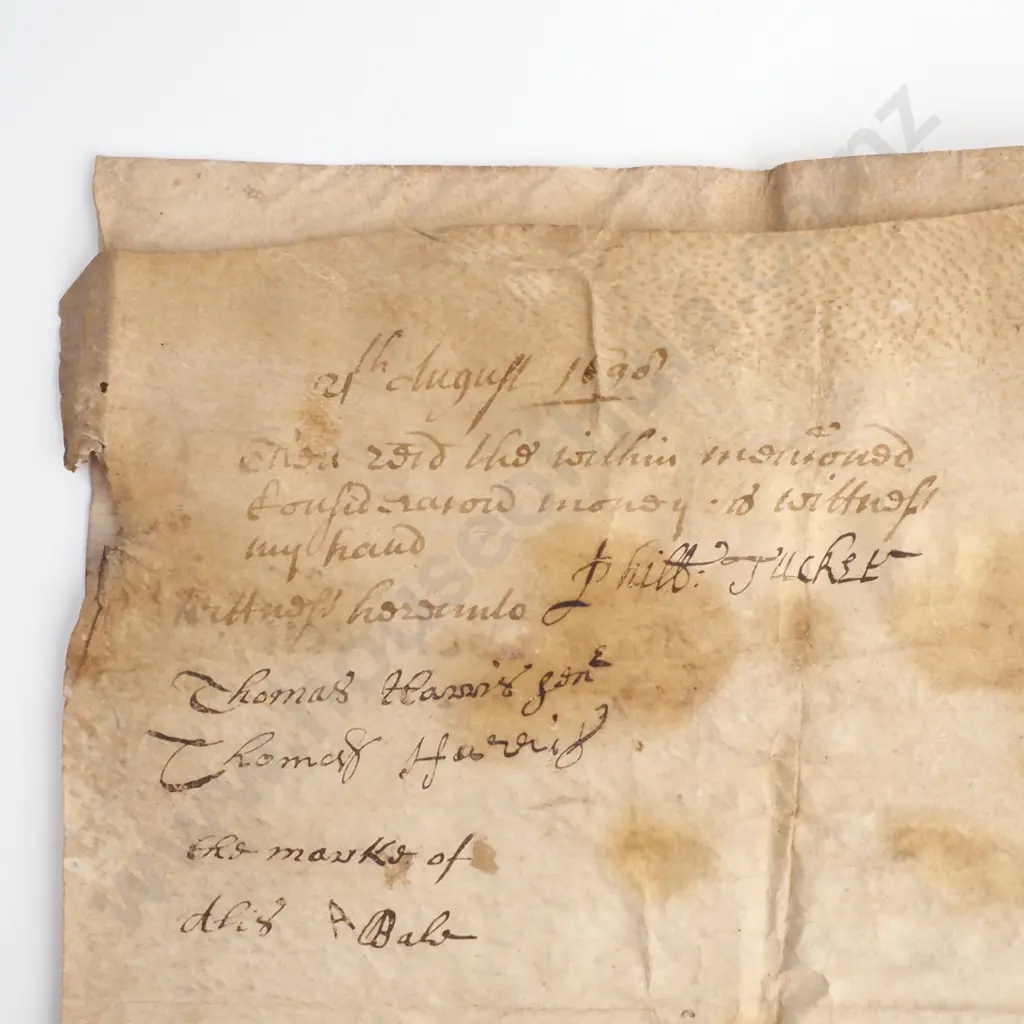 21th August 1698
Then recd the within mencioned
Consideracion money as wittness
my hand
Phill: Tucker
Wittness hereunto
Thomas Harris senr
Thomas Harris
the marke of
Alis A Bale